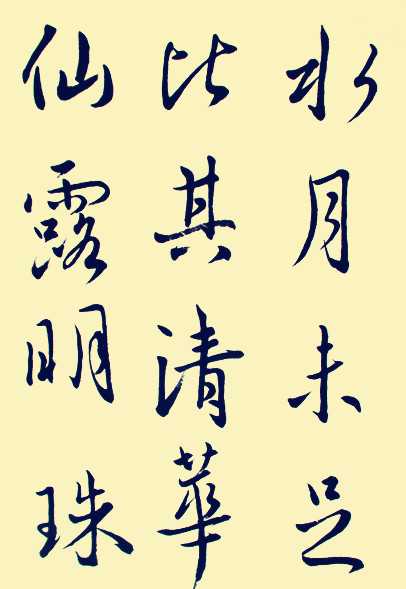 水月未足
比其清華
仙露明珠